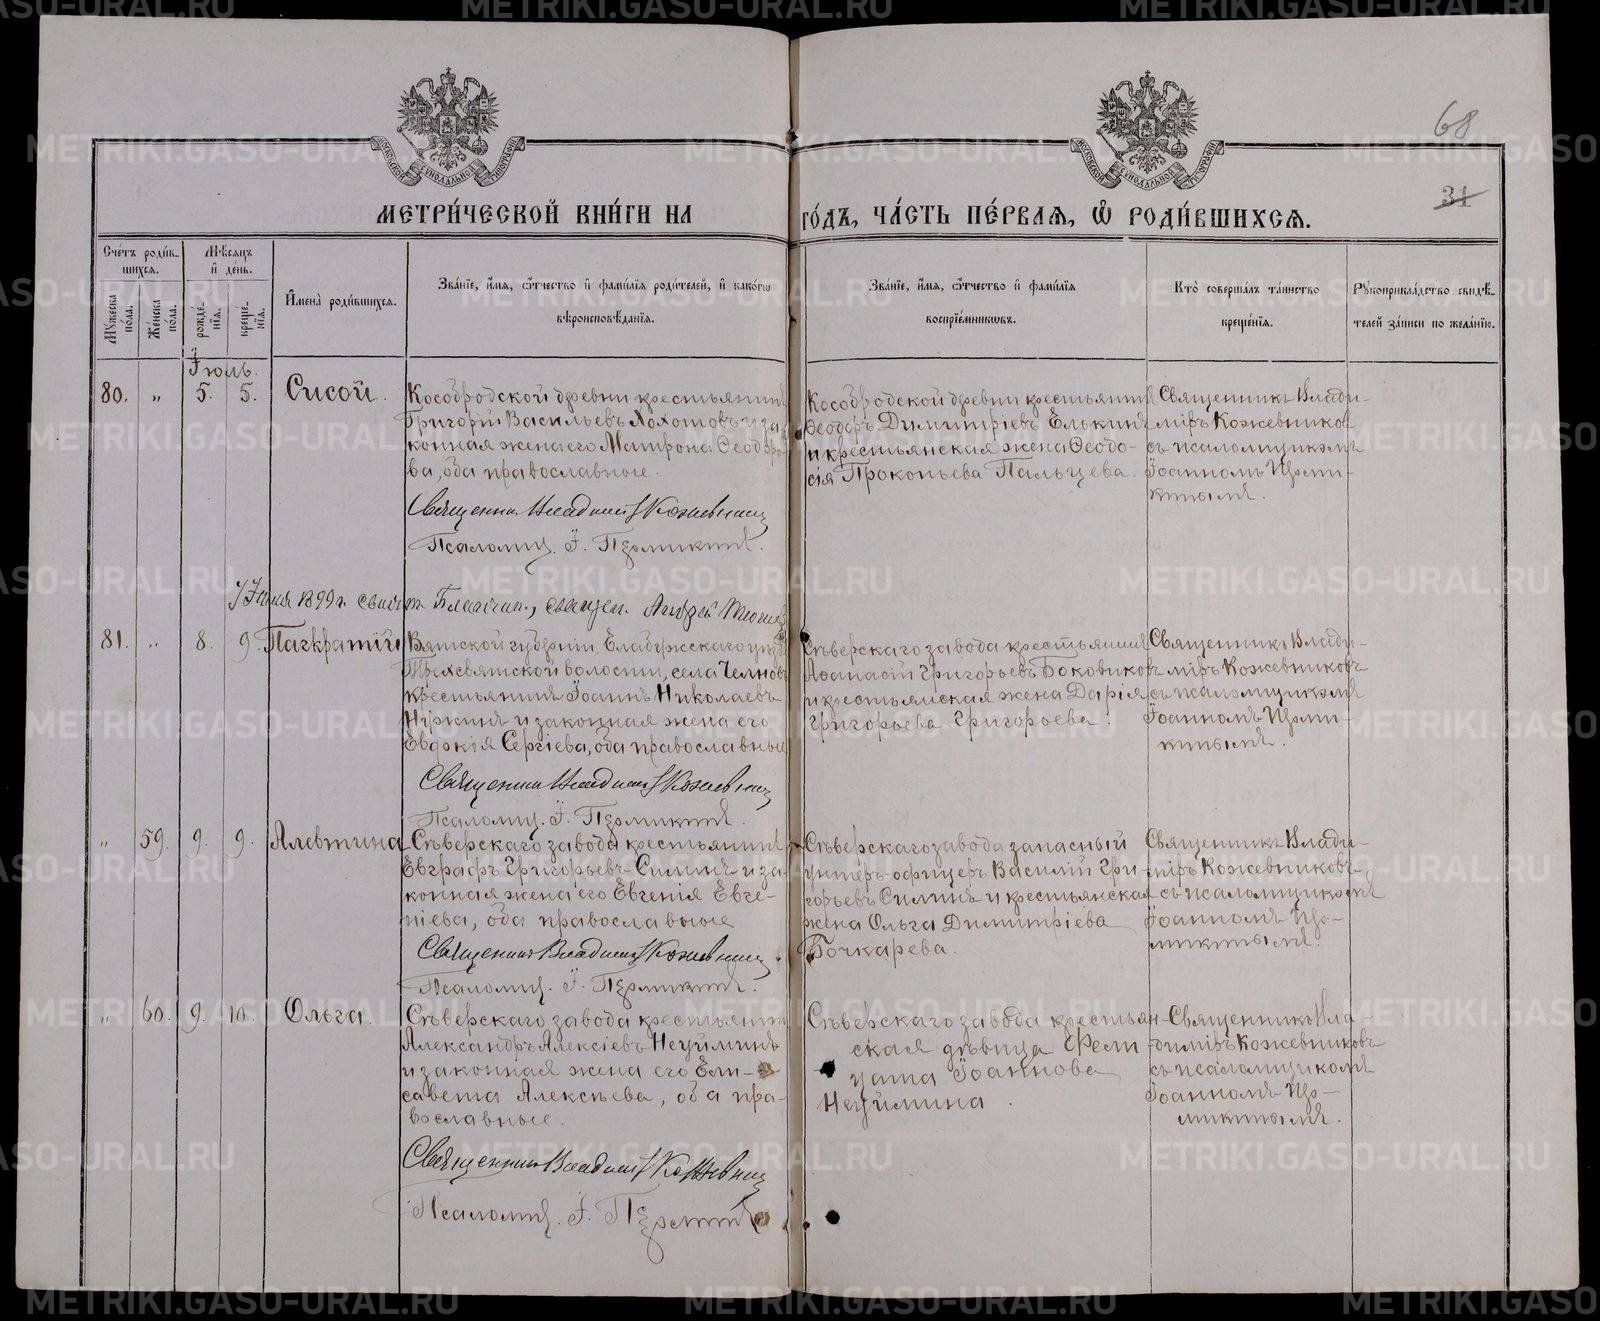 METRIKI.GASO-URAL.RU
68
31
МЕТРИ́ЧЕСКОЙ КНИ́ГИ НА
ГО́ДЪ, ЧА́СТЬ ПЕ́РВАЯ, Ѿ РОДИ́ВШИХСЯ.
Сче́тъ роди́вшихся.
Мѣ́сяцъ и де́нь.
Му́жеска по́ла.
Же́нска по́ла.
рожде́нїя.
креще́нїя.
И҆мена̀ роди́вшихся.
Зва́нїе, и҆́мя, ѻ҆́тчество и҆ фами́лїя роди́телей, и҆ како́гѡ
вѣроисповѣ́данїя.
Зва́нїе, и҆́мя, ѻ҆́тчество и҆ фами́лїя
воспрїе́мниковъ.
Кто̀ соверша́лъ та́инство
креще́нїя.
Рꙋкоприкла́дство свидѣ́-
телей за́писи по жела́нїю.
Іюль.
80. „ 5. 5. Сисой.
Кособродской древни крестьянинъ
Григорій Васильевъ Хохотовъ и за-
конная жена его Матрона Ѳеодоро-
ва, оба православные.
Священник Владимір Кожевников
Псаломщ. І. Пермикинъ.
Кособродской древни крестьянинъ
Ѳеодоръ Димитріевъ Елькинъ
и крестьянская жена Ѳеодо-
сія Прокопьева Пальцева.
Священникъ Влади-
міръ Кожевниковъ
съ псаломщикомъ
Іоанномъ Перми-
кинымъ.
1899 г.
81. „ 8. 9. Пагкратій
Вятской губерніи, Елабужскаго уѣзда
Трехсвятской волости, села Челновъ
крестьянинъ Іоаннъ Николаевъ
Нуркинъ и законная жена его
Евдокія Сергіева, оба православные
Священник Владимір Кожевников
Псаломщ. І. Пермикинъ.
Сѣверскаго завода крестьянинъ
Аѳанасій Григорьевъ Боковиковъ
и крестьянская жена Дарія
Григорьева Григорьева.
Священникъ Влади-
міръ Кожевниковъ
съ псаломщикомъ
Іоанномъ Перми-
кинымъ.
„ 59. 9. 9. Алевтина
Сѣверскаго завода крестьянинъ
Евграфъ Григорьевъ Силинъ и за-
конная жена его Евгенія Евге-
ніева, оба православные
Священник Владимір Кожевников.
Псаломщ. І. Пермикинъ.
Сѣверскаго завода запасный
унтеръ-офицеръ Василій Гри-
горьевъ Силинъ и крестьянская
жена Ольга Димитріева
Бочкарева.
Священникъ Влади-
міръ Кожевниковъ
съ псаломщикомъ
Іоанномъ Пер-
микинымъ.
„ 60. 9. 10. Ольга.
Сѣверскаго завода крестьянинъ
Александръ Алексіевъ Неуйминъ
и законная жена его Ели-
савета Алексѣева, оба пра-
вославные.
Священник Владимір Кожевников
Псаломщ. І. Пермикинъ
Сѣверскаго завода крестьян-
ская дѣвица Фели-
цата Іоаннова
Неуймина.
Священникъ Вла-
диміръ Кожевниковъ
съ псаломщикомъ
Іоанномъ Пер-
микинымъ.